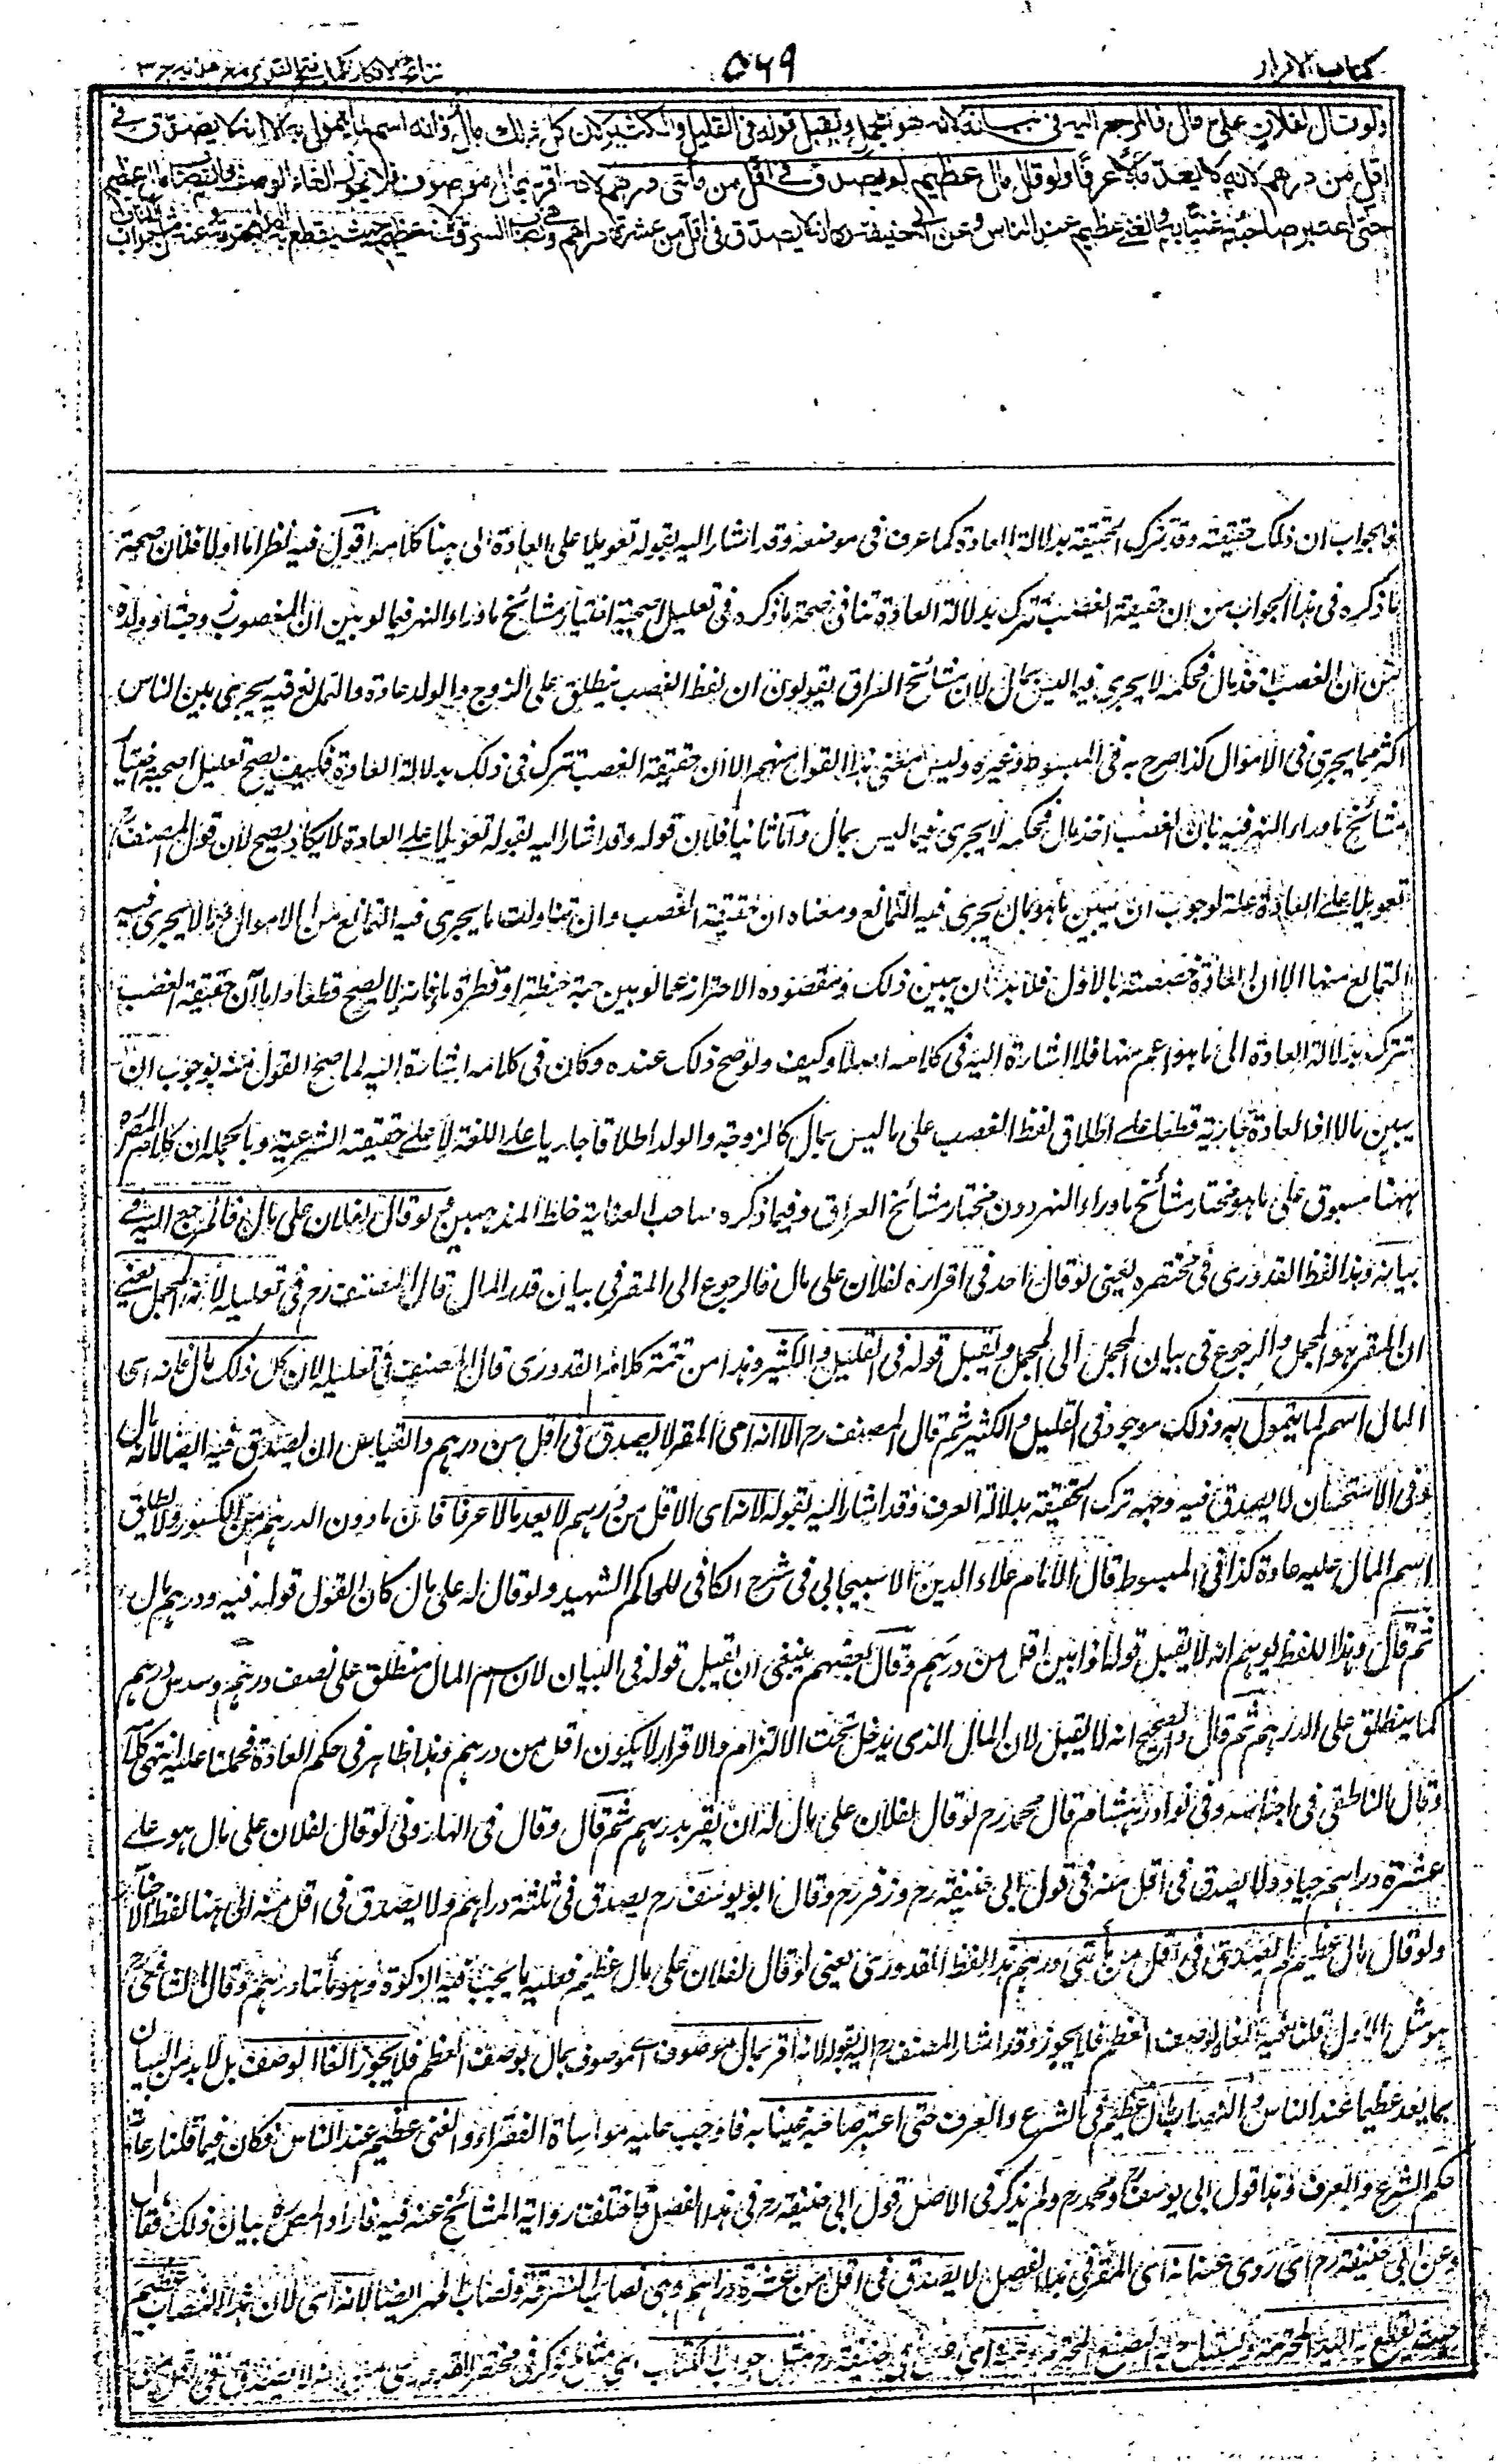 كتاب الاقرار
۵۶۹
نتائج الافكار تكملة فتح القدير مع هدايه ج ۳
ولو قال لفلان علي مال فالمرجع اليه في بيانه لانه هو المجمل ويقبل قوله في القليل والكثير لان كل ذلك مال فانه اسم لما يتمول به الا انه لا يصدق في
اقل من درهم لانه لا يعد مالا عرفا ولو قال مال عظيم لم يصدق في اقل من مائتي درهم لانه اقر بمال موصوف فلا يجوز الغاء الوصف والنصاب مال عظيم
حتى اعتبر صاحبه غنيا به والغني عظيم عند الناس وعن ابي حنيفة ره انه لا يصدق في اقل من عشرة دراهم وهي نصاب السرقة لانه عظيم حيث يقطع به اليد المحترمة وعنه مثل جواب الكتاب
فالجواب ان ذلك حقيقته وقد تترك الحقيقة بدلالة العادة كما عرف في موضعه وقد اشار اليه بقوله تعويلا على العادة الى هنا كلامه اقول فيه نظر اما اولا فلان صحة
ما ذكره في هذا الجواب من ان حقيقة الغصب تترك بدلالة العادة تنافي صحة ما ذكره في تعليل اصحية اختيار مشائخ ما وراء النهر فيما لو بين ان المغصوب زوجته او ولده
من ان الغصب اخذ مال فحكمه لا يجري فيما ليس بمال لان مشائخ العراق يقولون ان لفظ الغصب ينطلق على الزوج والولد عادة والتمانع فيه يجري بين الناس
اكثر مما يجري في الاموال كذا صرح به في المبسوط وغيره وليس معنى هذا القول منهم الا ان حقيقة الغصب تترك في ذلك بدلالة العادة فكيف يصح تعليل اصحية اختيار
مشائخ ما وراء النهر فيه بان الغصب اخذ مال فحكمه لا يجري فيما ليس بمال واما ثانيا فلان قوله وقد اشار اليه بقوله تعويلا على العادة لا يكاد يصح لان قول المصنف رح
تعويلا على العادة علة لوجوب ان يبين ما هو مال يجري فيه التمانع ومعناه ان حقيقة الغصب وان تناولت ما يجري فيه التمانع من الاموال وما لا يجري فيه
التمانع منها الا ان العادة خصصته بالاول فلا بد ان يبين ذلك ومقصوده الاحتراز عما لو بين حبة حنطة او قطرة ماء فانه لا يصح قطعا واما ان حقيقة الغصب
تترك بدلالة العادة الى ما هو اعم منها فلا اشارة اليه في كلامه اصلا وكيف ولو صح ذلك عنده وكان في كلامه اشارة اليه لما صح القول منه بوجوب ان
يبين مالا اذ العادة جارية قطعا على اطلاق لفظ الغصب على ما ليس بمال كالزوجة والولد اطلاقا جاريا على اللغة لا على حقيقته الشرعية وبالجملة ان كلام المصره
ههنا مسبوق على ما هو مختار مشائخ ما وراء النهر دون مختار مشائخ العراق وفيما ذكره صاحب العناية خلط المذهبين م لو قال لفلان علي مال فالمرجع اليه في
بيانه وهذا لفظ القدوري في مختصره يعني لو قال احد في اقراره لفلان علي مال فالرجوع الى المقر في بيان قدر المال قال المصنف رح في تعليله لانه المجمل يعني
ان المقر هو المجمل والرجوع في بيان المجمل الى المجمل ويقبل قوله في القليل والكثير وهذا من تتمة كلام القدوري قال المصنف في تعليله لان كل ذلك مال فانه اى
المال اسم لما يتمول به وذلك موجود في القليل والكثير ثم قال المصنف رح الا انه اى المقر لا يصدق في اقل من درهم والقياس ان يصدق فيه ايضا لانه مال
وفي الاستحسان لا يصدق فيه وجهه ترك الحقيقة بدلالة العرف وقد اشار اليه بقوله لانه اى الاقل من درهم لا يعد مالا عرفا فان ما دون الدرهم من الكسور ولا يطلق
اسم المال عليه عادة كذا في المبسوط قال الامام علاء الدين الاسبيجابي في شرح الكافي للحاكم الشهيد ولو قال له علي مال كان القول قوله فيه ودرهم مال
ثم قال وهذا اللفظ يوهم انه لا يقبل قوله اذا بين اقل من درهم وقال بعضهم ينبغي ان يقبل قوله في البيان لان اسم المال منطلق على نصف درهم وسدس درهم
كما ينطلق على الدرهم ثم قال والصحيح انه لا يقبل لان المال الذي يدخل تحت الالتزام والاقرار لا يكون اقل من درهم وهذا ظاهر في حكم العادة فحملنا عليه انتهى كلامه
وقال الناطفي في اجناسه وفي نوادر هشام قال محمد رح لو قال لفلان علي مال له ان يقر بدرهم ثم قال وقال في الهاروني لو قال لفلان علي مال هو على
عشرة دراهم جياد ولا يصدق في اقل منه في قول ابي حنيفة رح وزفر رح وقال ابو يوسف رح يصدق في ثلثة دراهم ولا يصدق في اقل منه الى هنا لفظ الاجناس
ولو قال مال عظيم لم يصدق في اقل من مأتي درهم هذا لفظ القدوري يعني لو قال لفلان علي مال عظيم فعليه ما يجب فيه الزكوة وهو مأتا درهم وقال الشافعي رح
هو مثل الاول قلنا فيه الغاء لوصف العظم فلا يجوز وقد اشار المصنف رح اليه بقوله لانه اقر بمال موصوف اے موصوف بمال بوصف العظم فلا يجوز الغاء الوصف بل لا بد من البيان
بما يعد عظيما عند الناس والنصاب مال عظيم في الشرع والعرف حتى اعتبر صاحبه غنيا به فاوجب عليه مواساة الفقراء والغنى عظيم عند الناس فكان فيما قلنا رعاية
حكم الشرع والعرف وهذا قول ابي يوسف رح ومحمد رح ولم يذكر في الاصل قول ابي حنيفة رح في هذا الفصل فاختلفت رواية المشائخ عنه فيه فاراد المصره بيان ذلك فقال
وعن ابي حنيفة رح اى روى عنه انه اى المقر في هذا الفصل لا يصدق في اقل من عشرة دراهم وهي نصاب السرقة ونصاب المهر ايضا لانه اى لان هذا النصاب عظيم
حيث يقطع به اليد المحترمة ويستباح به البضع المحترم وعنه اى عن ابي حنيفة رح مثل جواب الكتاب اى مثل ما ذكر في مختصر القدوري